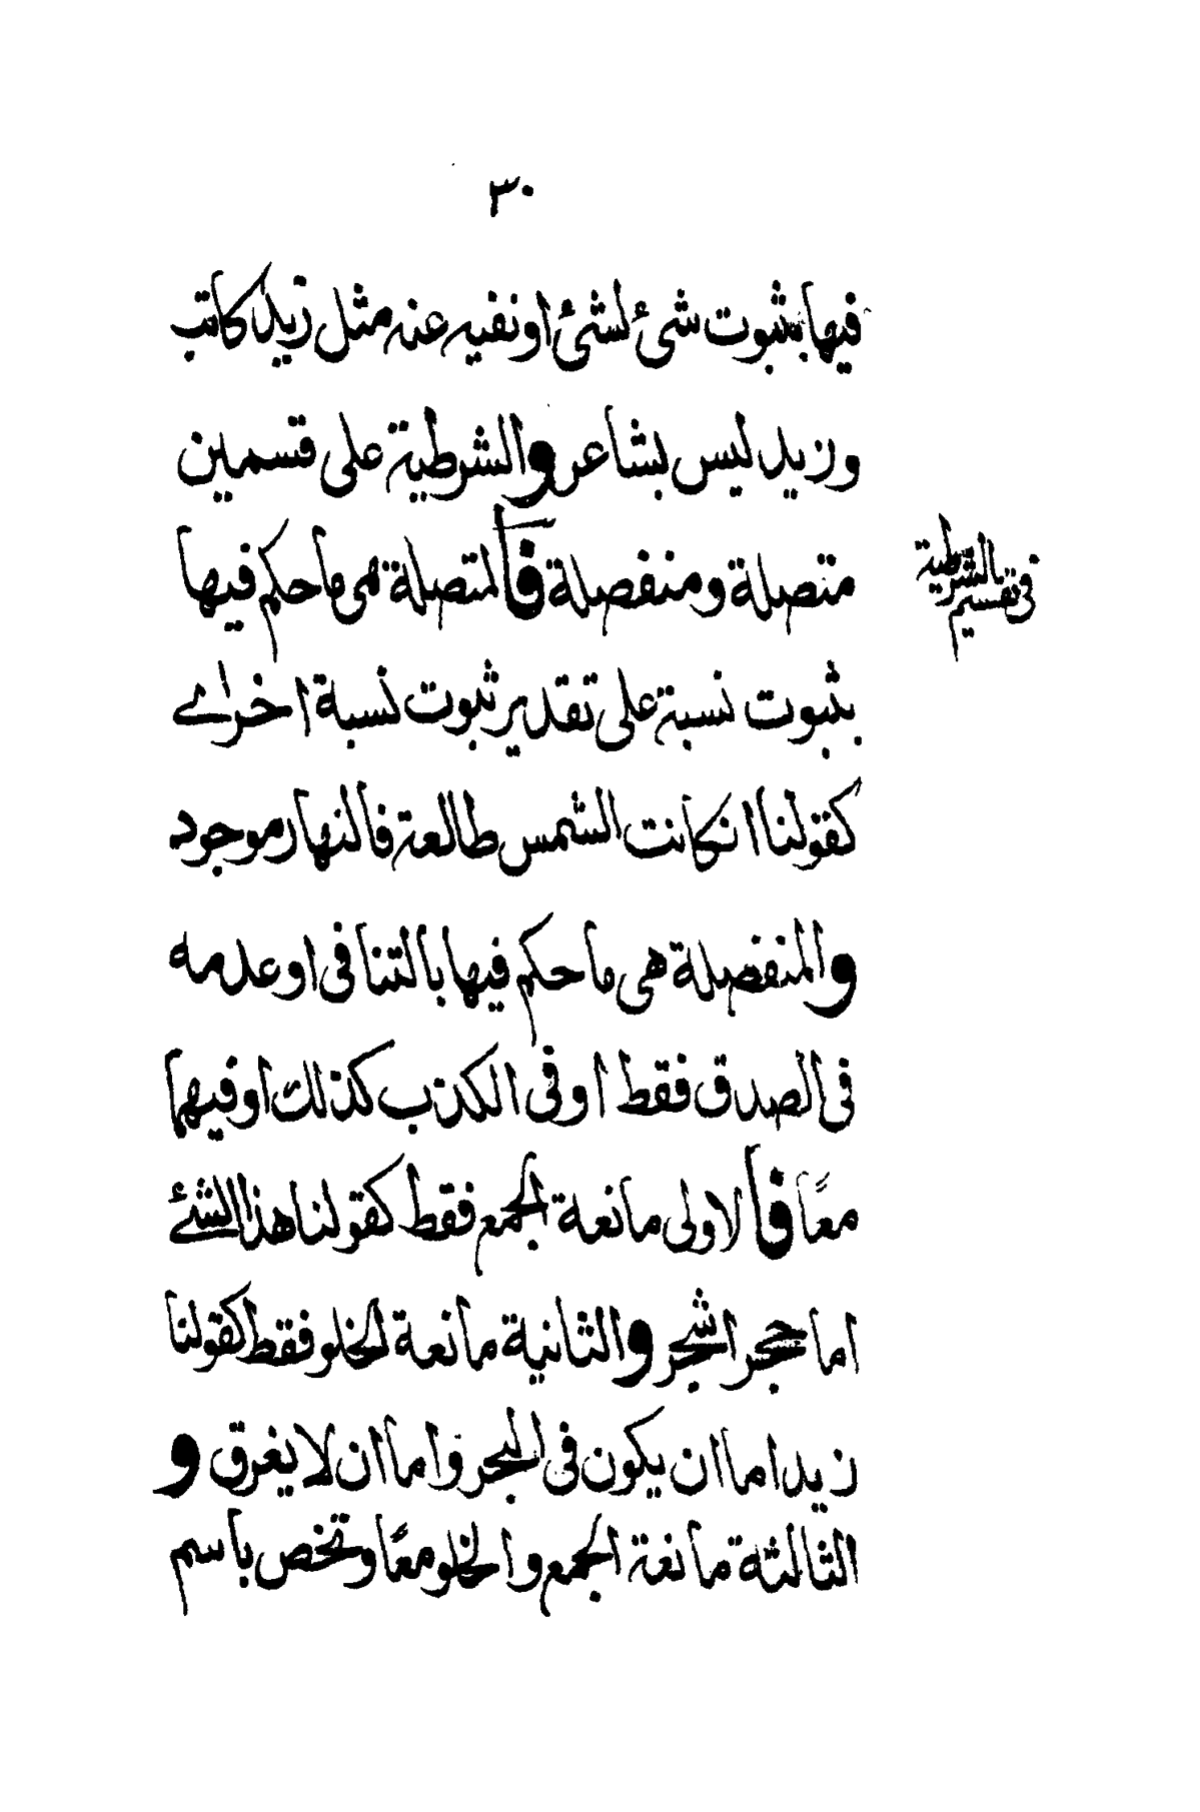 ٣٠
فيها بثبوت شئ لشئ او نفيه عنه مثل زيد كاتب
وزيد ليس بشاعر والشرطية على قسمين
متصلة ومنفصلة فالمتصلة هى ما حكم فيها
فى تقسيم الشرطية
بثبوت نسبة على تقدير ثبوت نسبة اخراے
كقولنا انكانت الشمس طالعة فالنهار موجود
والمنفصلة هى ما حكم فيها بالتنافى او عدمه
فى الصدق فقط او فى الكذب كذلك او فيهما
معًا فالاولى مانعة الجمع فقط كقولنا هذا الشئ
اما حجر اشجر والثانية مانعة الخلو فقط كقولنا
زيد اما ان يكون فى البحر واما ان لا يغرق و
الثالثة مانعة الجمع والخلو معًا وتخص باسم